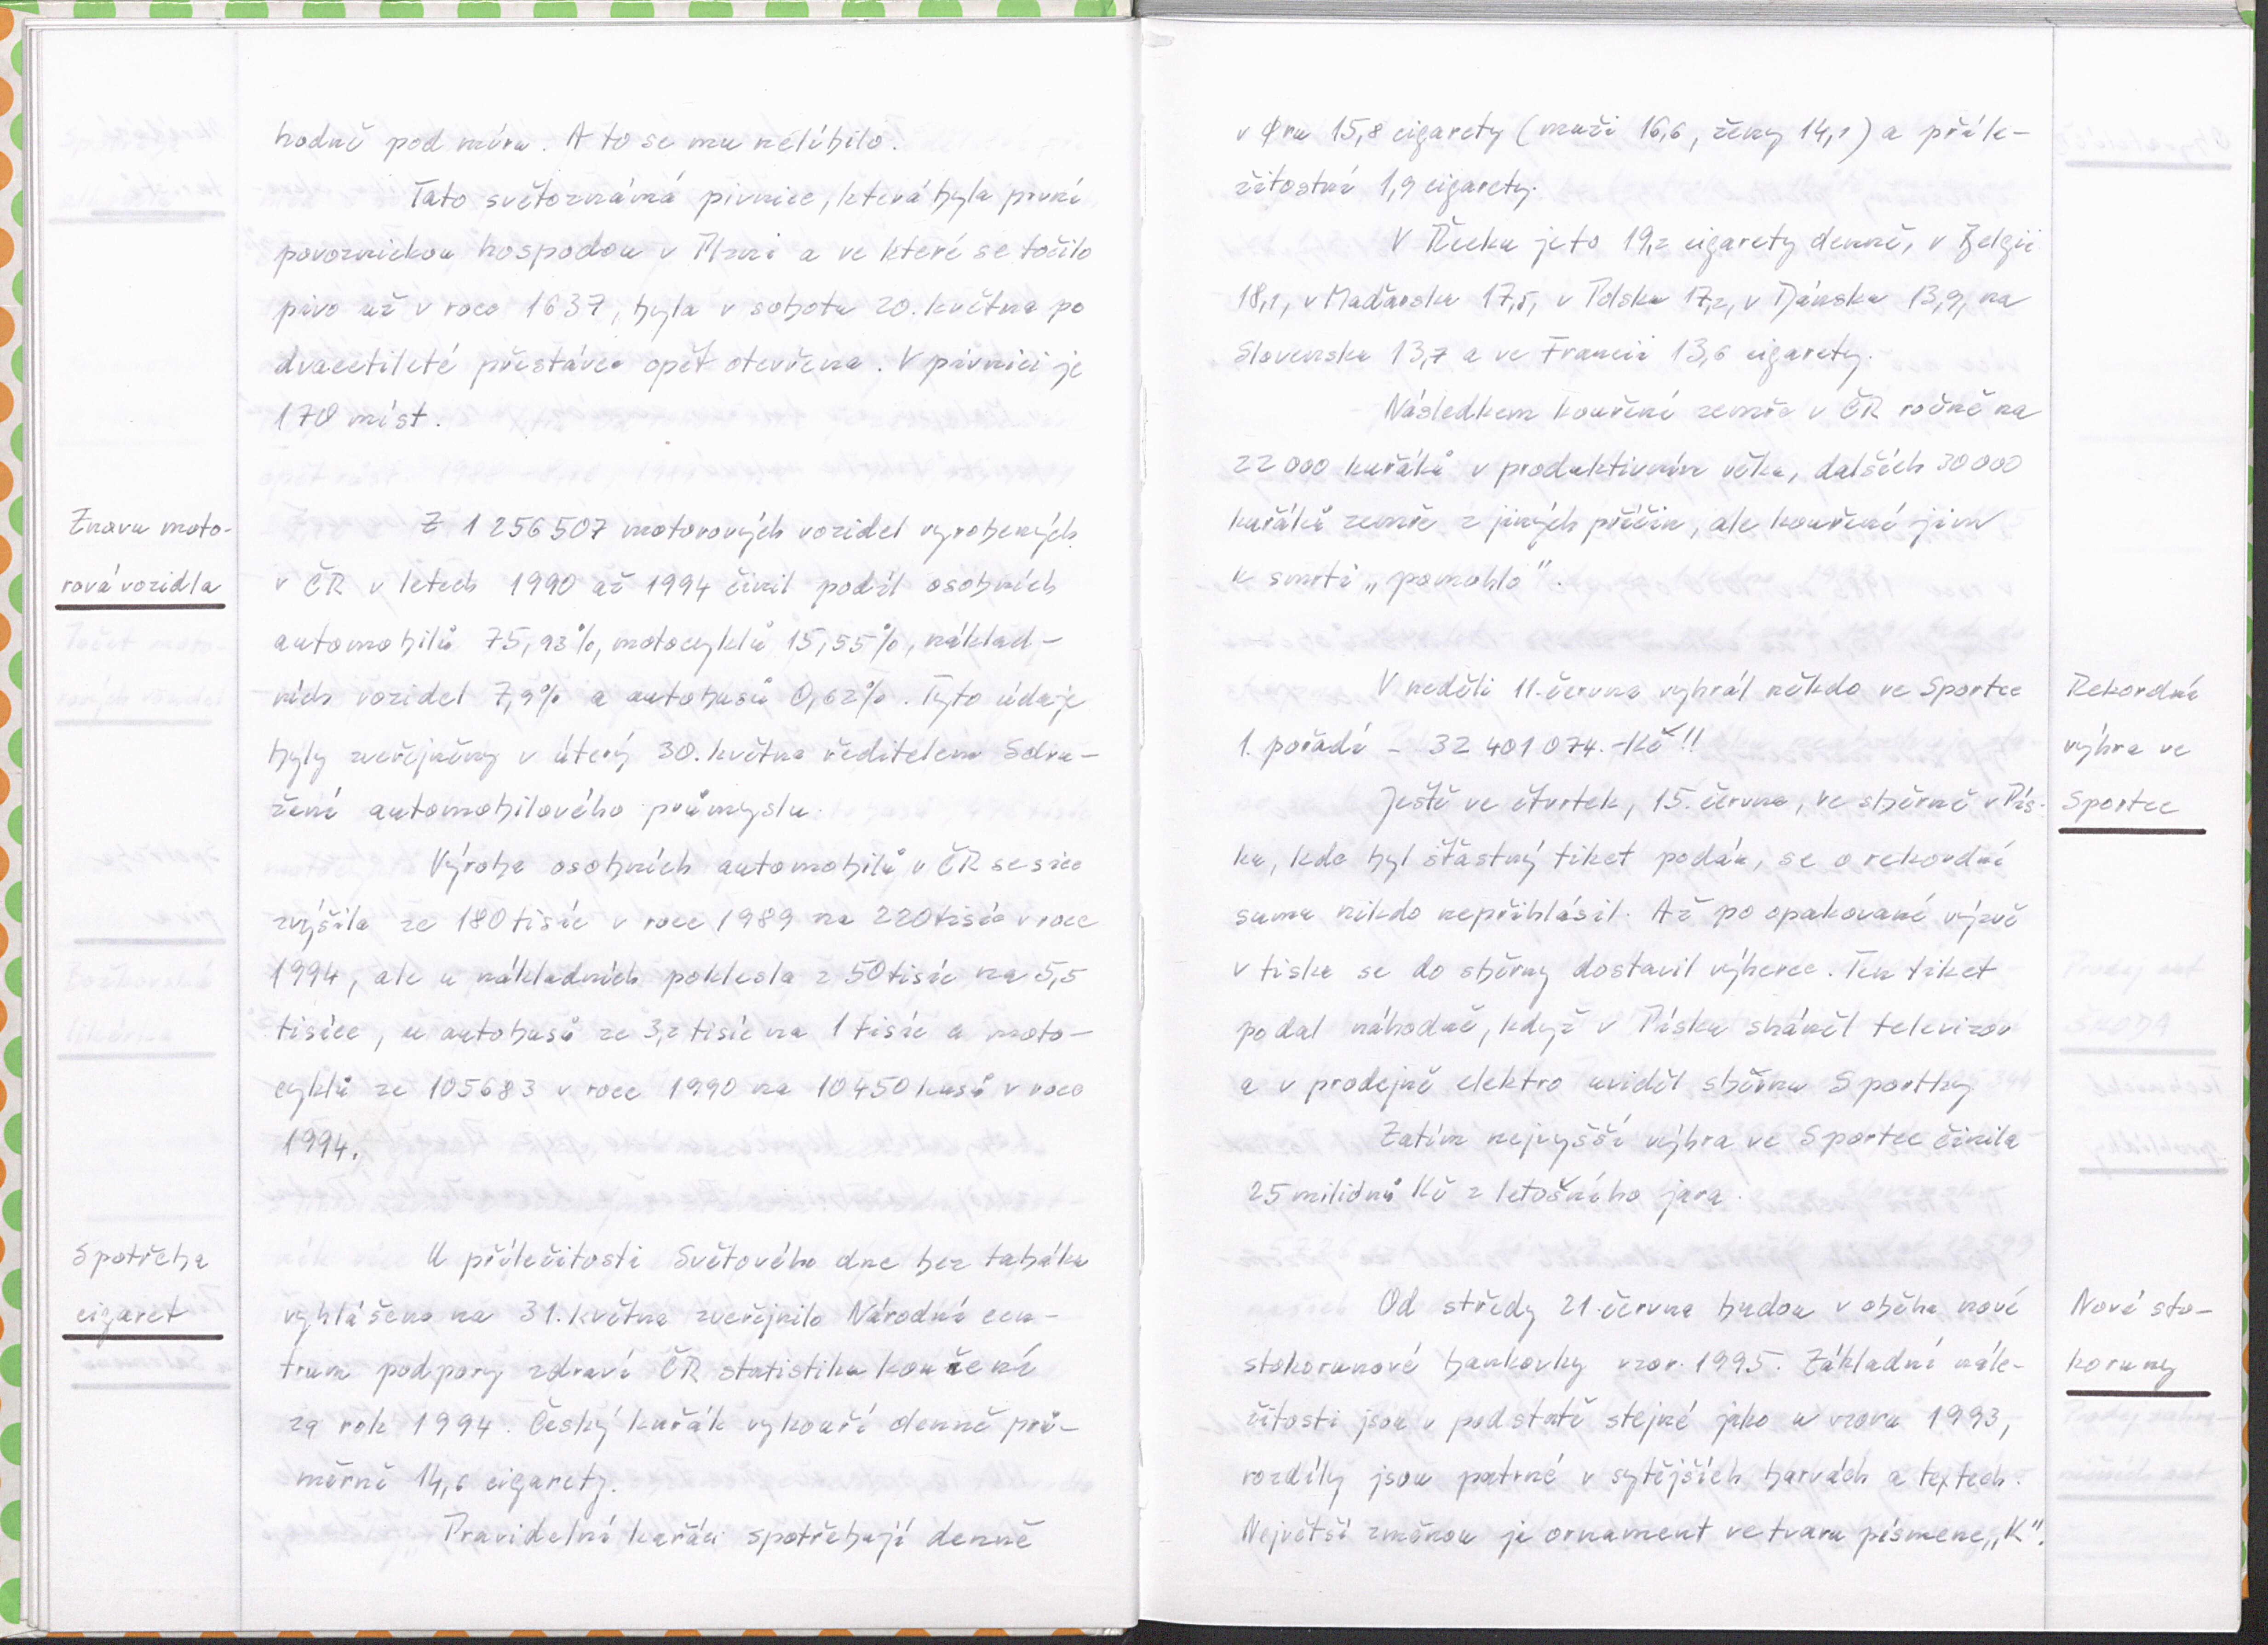 hodně pod míru. A to se mu nelíbilo.
Tato světoznámá pivnice, která byla první
povoznickou hospodou v Plzni a ve které se točilo
pivo už v roce 1637, byla v sobotu 20. května po
dvacetileté přestávce opět otevřena. V pivnici je
170 míst.
Znovu moto-
rová vozidla
Z 1 256 507 motorových vozidel vyrobených
v ČR v letech 1990 až 1994 činil podíl osobních
automobilů 75,93%, motocyklů 15,55%, náklad-
ních vozidel 7,9% a autobusů 0,62%. Tyto údaje
byly zveřejněny v úterý 30. května ředitelem Sdru-
žení automobilového průmyslu.
Výroba osobních automobilů v ČR se sice
zvýšila ze 180 tisíc v roce 1989 na 220 tisíc v roce
1994, ale u nákladních poklesla z 50 tisíc na 5,5
tisíce, u autobusů ze 3,2 tisíc na 1 tisíc a moto-
cyklů ze 105683 v roce 1990 na 10450 kusů v roce
1994.
Spotřeba
cigaret
U příležitosti Světového dne bez tabáku
vyhlášeno na 31. května zveřejnilo Národní cen-
trum podpory zdraví ČR statistiku kouření
za rok 1994. Český kuřák vykouří denně prů-
měrně 14,6 cigarety.
Pravidelní kuřáci spotřebují denně
v Øru 15,8 cigarety (muži 16,6, ženy 14,1) a příle-
žitostní 1,9 cigarety.
V Řecku je to 19,2 cigarety denně, v Belgii
18,1, v Maďarsku 17,5, v Polsku 17,2, v Dánsku 13,9, na
Slovensku 13,7 a ve Francii 13,6 cigarety.
Následkem kouření zemře v ČR ročně na
22 000 kuřáků v produktivním věku, dalších 30 000
kuřáků zemře z jiných příčin, ale kouření jim
k smrti „pomohlo".
Rekordní
výhra ve
Sportce
V neděli 11. června vyhrál někdo ve Sportce
1. pořadí – 32 401 074.-Kč!!
Ještě ve čtvrtek, 15. června, ve sběrně v Pís-
ku, kde byl šťastný tiket podán, se o rekordní
sumu nikdo nepřihlásil. Až po opakované výzvě
v tisku se do sběrny dostavil výherce. Ten tiket
podal náhodně, když v Písku sháněl televizor
a v prodejně elektro uviděl sběrnu Sportky
Zatím nejvyšší výhra ve Sportce činila
25 miliónů Kč z letošního jara.
Nové sto-
koruny
Od středy 21. června budou v oběhu nové
stokorunové bankovky vzor. 1995. Základní nále-
žitosti jsou v podstatě stejné jako u vzoru 1993,
rozdíly jsou patrné v sytějších barvách a textech.
Největší změnou je ornament ve tvaru písmene „K".